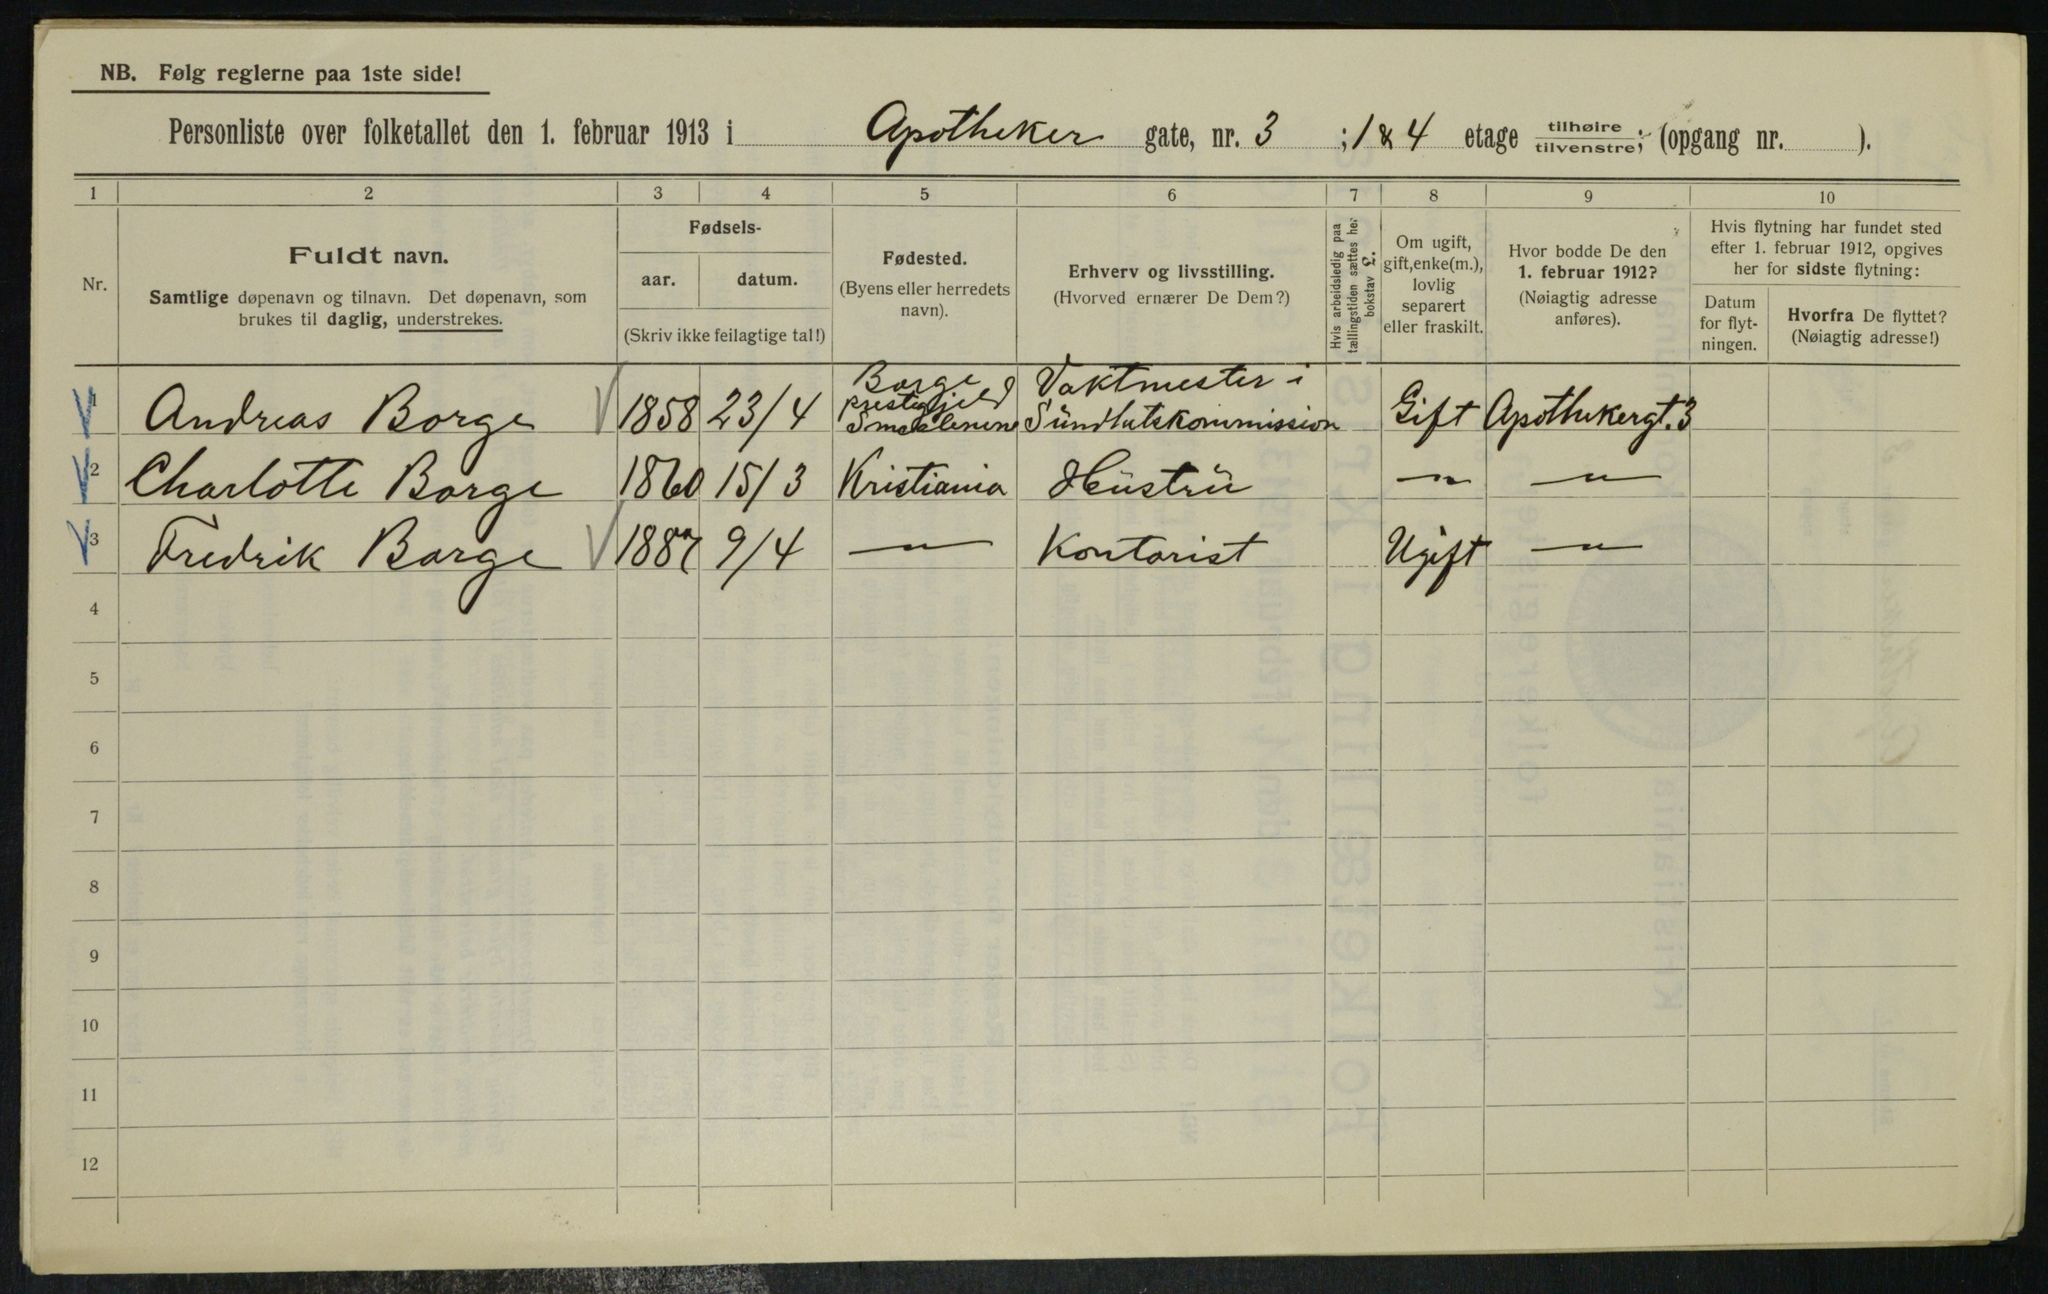 NB. Følg reglerne paa 1ste side!
Personliste over folketallet den 1. februar 1913 i Apotheker gate, nr. 3 ; 1 & 4 etage tilhøire tilvenstre; (opgang nr. ).
1 2 3 4 5 6 7 8 9 10
Nr.
Fuldt navn.
Samtlige døpenavn og tilnavn. Det døpenavn, som
brukes til daglig, understrekes.
Fødsels-
aar. datum.
(Skriv ikke feilagtige tal!)
Fødested.
(Byens eller herredets
navn).
Erhverv og livsstilling.
(Hvorved ernærer De Dem?)
Hvis arbeidsledig paa
tællingstiden sættes her
bokstav L.
Om ugift,
gift, enke(m.),
lovlig
separert
eller fraskilt.
Hvor bodde De den
1. februar 1912?
(Nøiagtig adresse
anføres).
Hvis flytning har fundet sted
efter 1. februar 1912, opgives
her for sidste flytning:
Datum
for flyt-
ningen.
Hvorfra De flyttet?
(Nøiagtig adresse!)
1 Andreas Borge 1858 23/4 Borge prestegjeld Smaalenene Vaktmester i Sündhetskommission Gift Apothekergt. 3
2 Charlotte Borge 1860 15/3 Kristiania Hüstrü — " — — " —
3 Fredrik Borge 1887 9/4 — " — Kontorist Ugift — " —
4
5
6
7
8
9
10
11
12